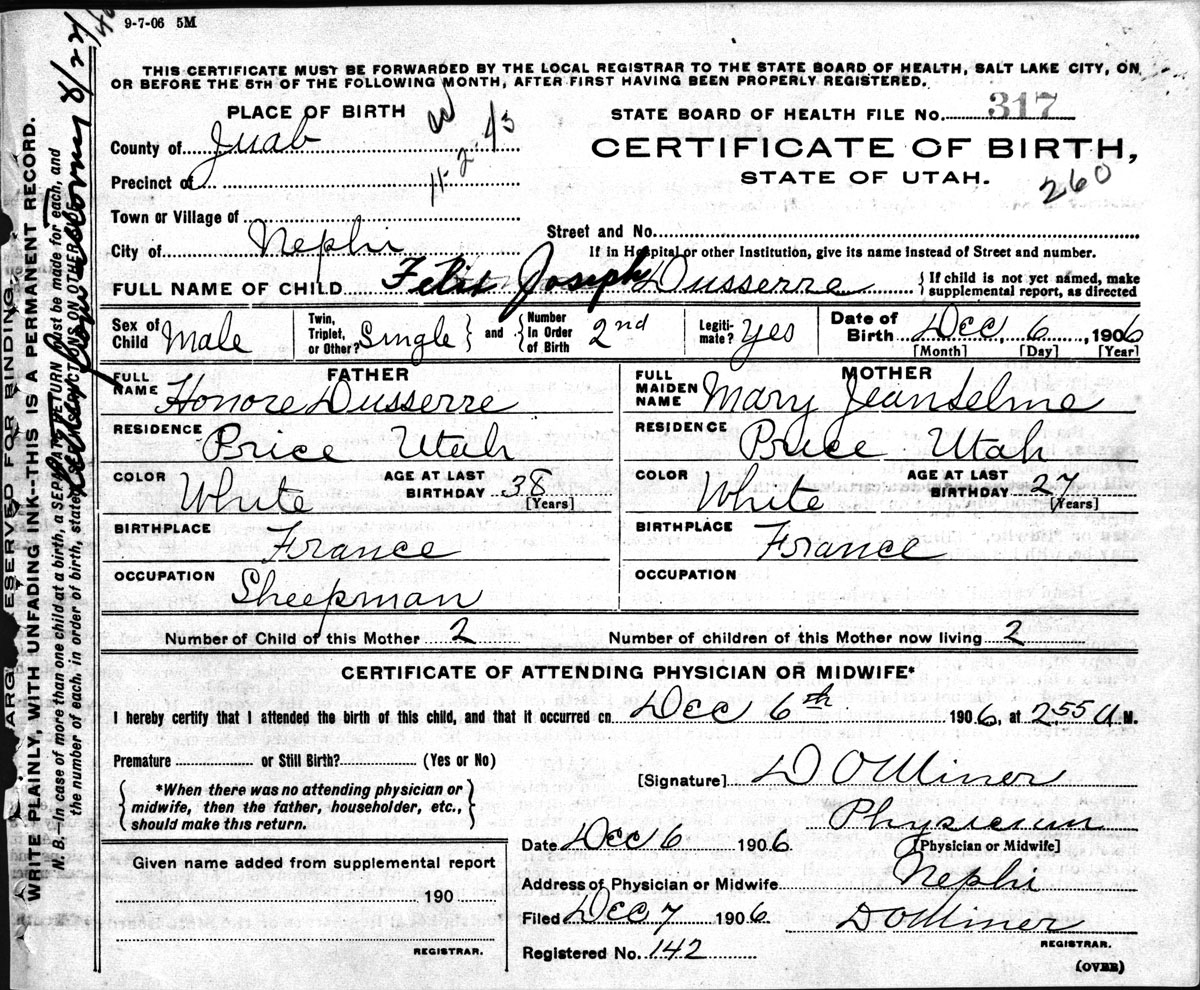 9-7-06 5M
THIS CERTIFICATE MUST BE FORWARDED BY THE LOCAL REGISTRAR TO THE STATE BOARD OF HEALTH, SALT LAKE CITY, ON
OR BEFORE THE 5TH OF THE FOLLOWING MONTH, AFTER FIRST HAVING BEEN PROPERLY REGISTERED.
PLACE OF BIRTH
County of Juab
Precinct of
Town or Village of
City of Nephi
W
11-2-43
STATE BOARD OF HEALTH FILE No. 317
CERTIFICATE OF BIRTH,
STATE OF UTAH.
260
Street and No.
If in Hospital or other Institution, give its name instead of Street and number.
FULL NAME OF CHILD Felix Joseph Dusserre { If child is not yet named, make supplemental report, as directed
Sex of Child Male
Twin, Triplet, or Other? Single } and { Number In Order of Birth 2nd
Legitimate? Yes
Date of Birth Dec, 6, 1906
[Month] [Day] [Year]
FATHER
FULL NAME Honore Dusserre
RESIDENCE Price Utah
COLOR White AGE AT LAST BIRTHDAY 38 [Years]
BIRTHPLACE France
OCCUPATION Sheepman
MOTHER
FULL MAIDEN NAME Mary Jeanselme
RESIDENCE Price Utah
COLOR White AGE AT LAST BIRTHDAY 27 [Years]
BIRTHPLACE France
OCCUPATION
Number of Child of this Mother 2 Number of children of this Mother now living 2
CERTIFICATE OF ATTENDING PHYSICIAN OR MIDWIFE*
I hereby certify that I attended the birth of this child, and that it occurred on Dec 6th 1906, at 2 55 A M.
Premature or Still Birth? (Yes or No)
{ *When there was no attending physician or
midwife, then the father, householder, etc.,
should make this return. }
[Signature] D O Miner
Physician
[Physician or Midwife]
Date Dec 6 1906.
Address of Physician or Midwife Nephi
Filed Dec 7 1906 D O Miner
REGISTRAR.
Registered No. 142
(OVER)
Given name added from supplemental report
190
REGISTRAR.
MARGIN RESERVED FOR BINDING.
WRITE PLAINLY, WITH UNFADING INK--THIS IS A PERMANENT RECORD.
N. B.—In case of more than one child at a birth, a SEPARATE RETURN must be made for each, and
the number of each, in order of birth, stated.